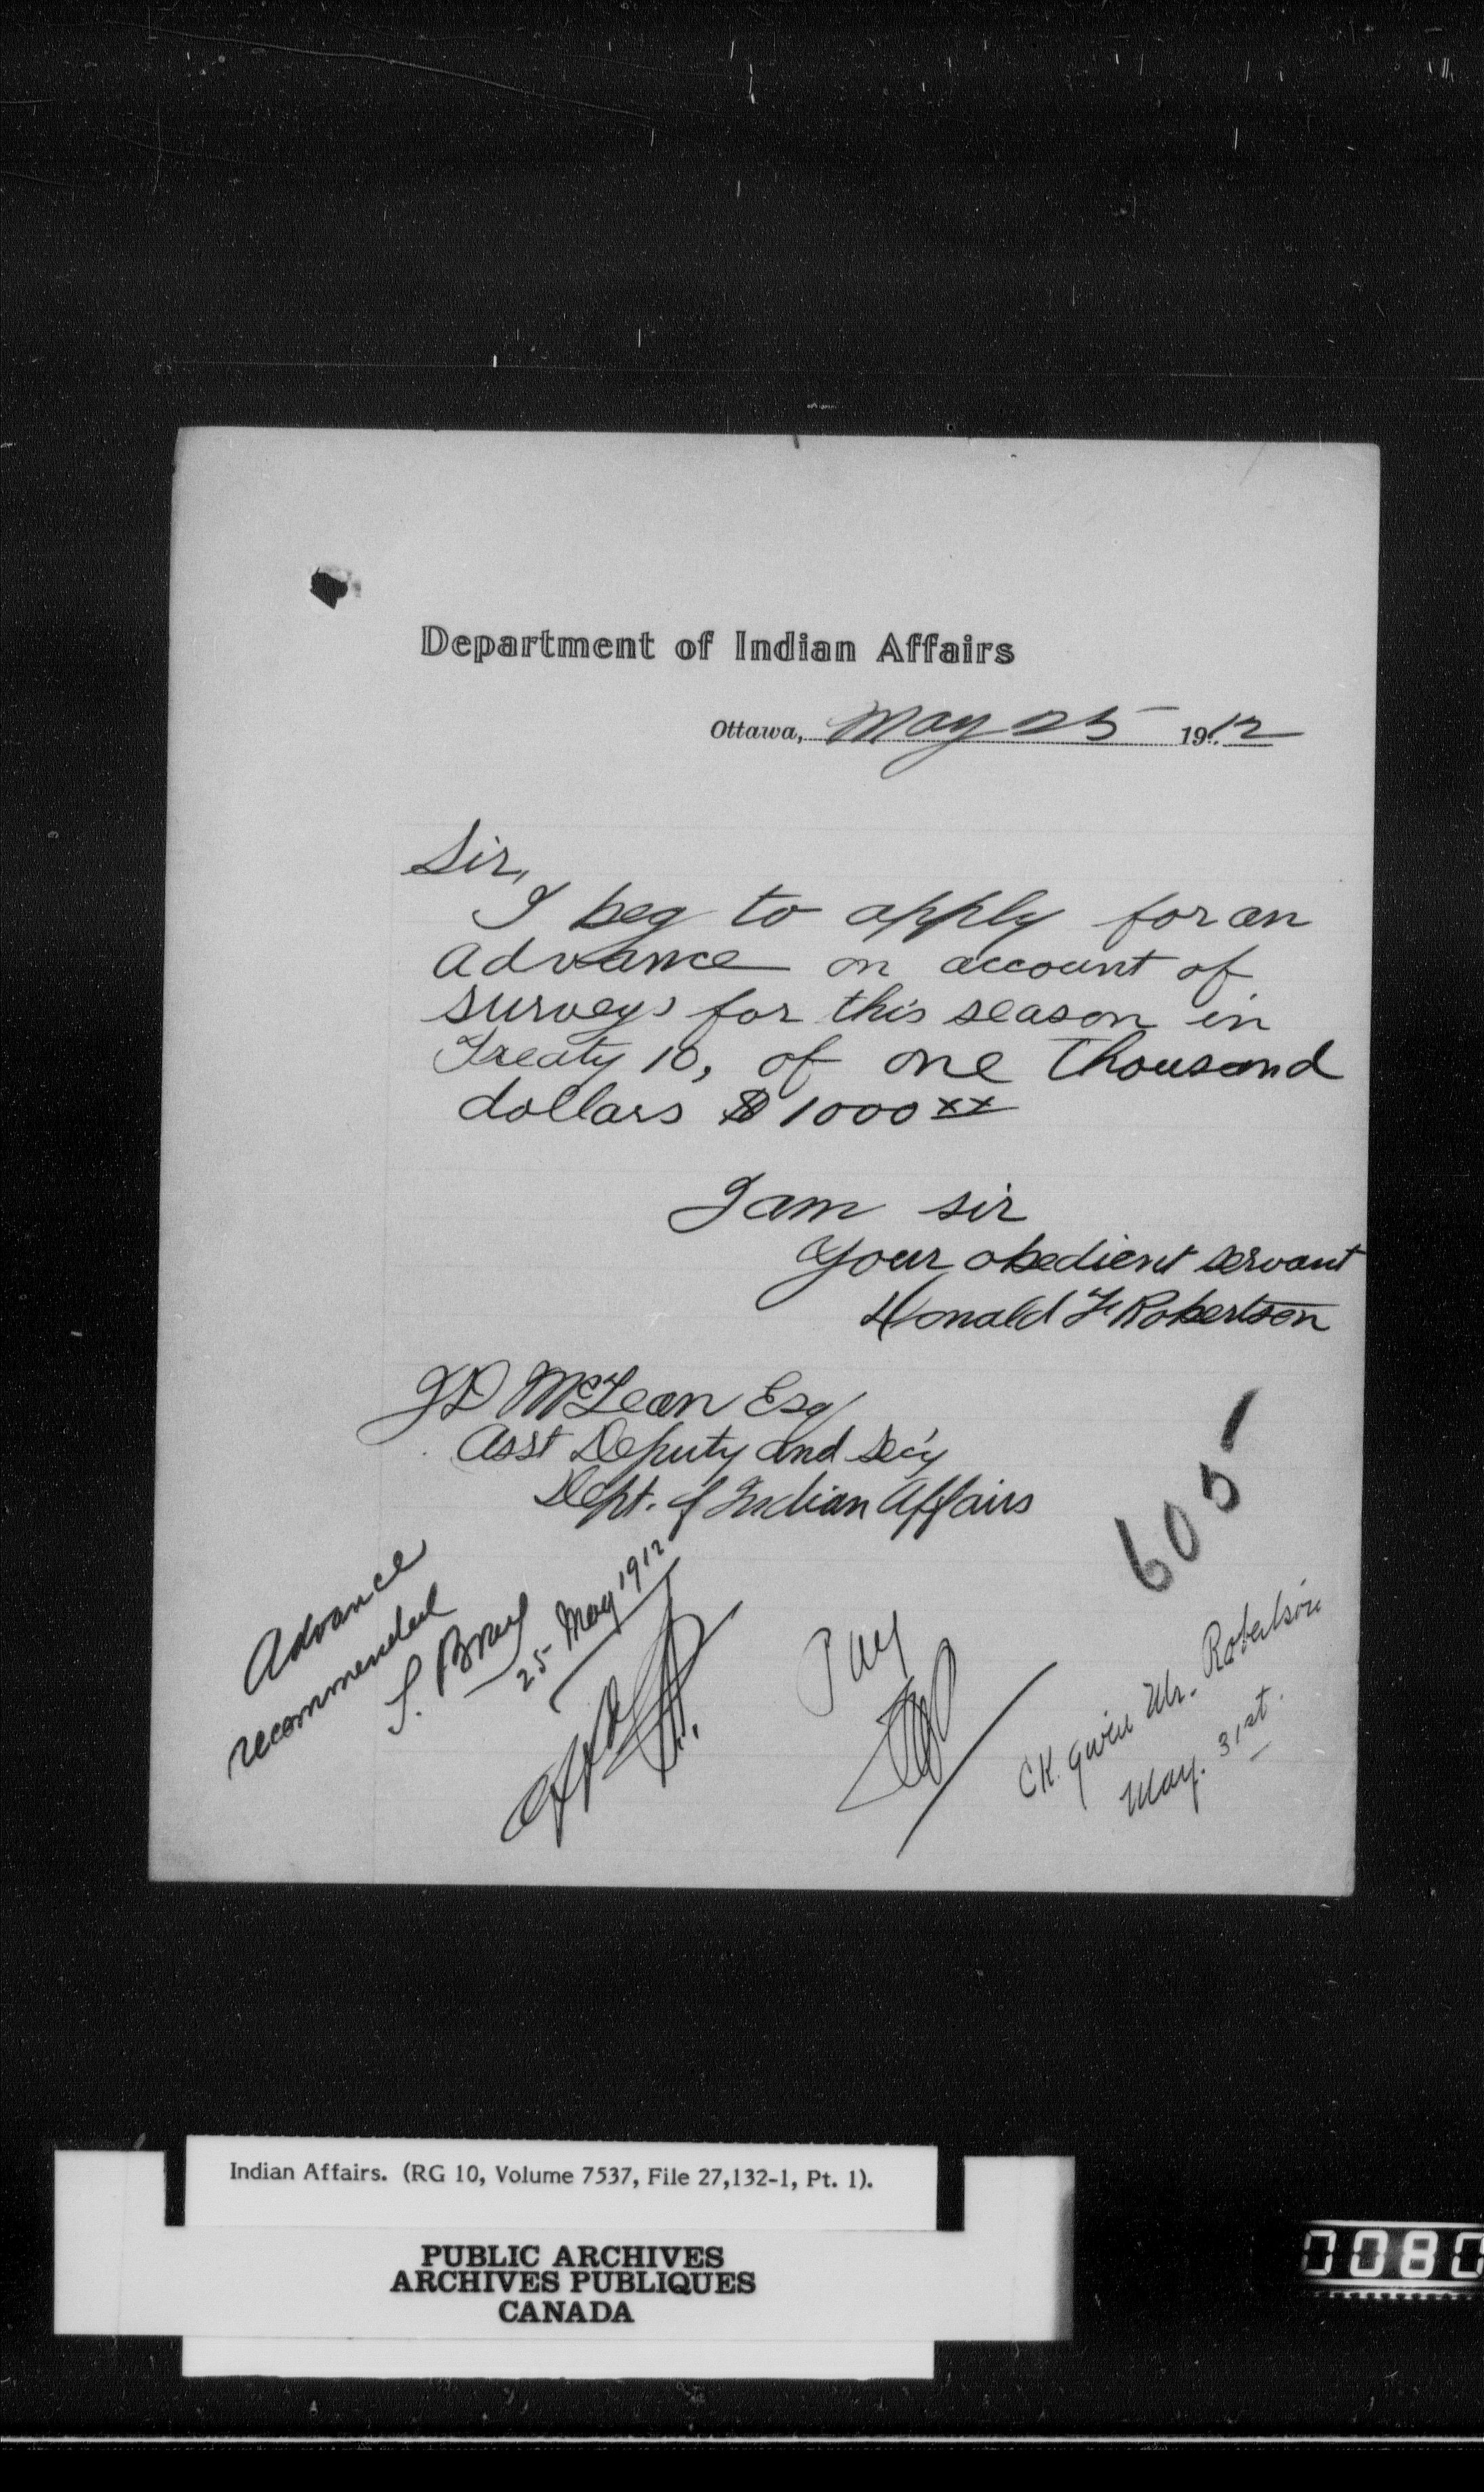 Department of Indian Affairs
Ottawa, May 25 1912
Sir,
I beg to apply for an
advance on account of
surveys for this season in
Treaty 10, of one Thousand
dollars $1000 xx
I am sir
Your obedient servant
Donald F Robertson
JD McLean Esq
Asst Deputy and Sec'y
Dept. of Indian Affairs
6051
Advance
recommended
S. Bray
25 May 1912
Pay
CK. given Mr. Robertson
May. 31st.
Indian Affairs. (RG 10, Volume 7537, File 27,132-1, Pt. 1).
PUBLIC ARCHIVES
ARCHIVES PUBLIQUES
CANADA
0080